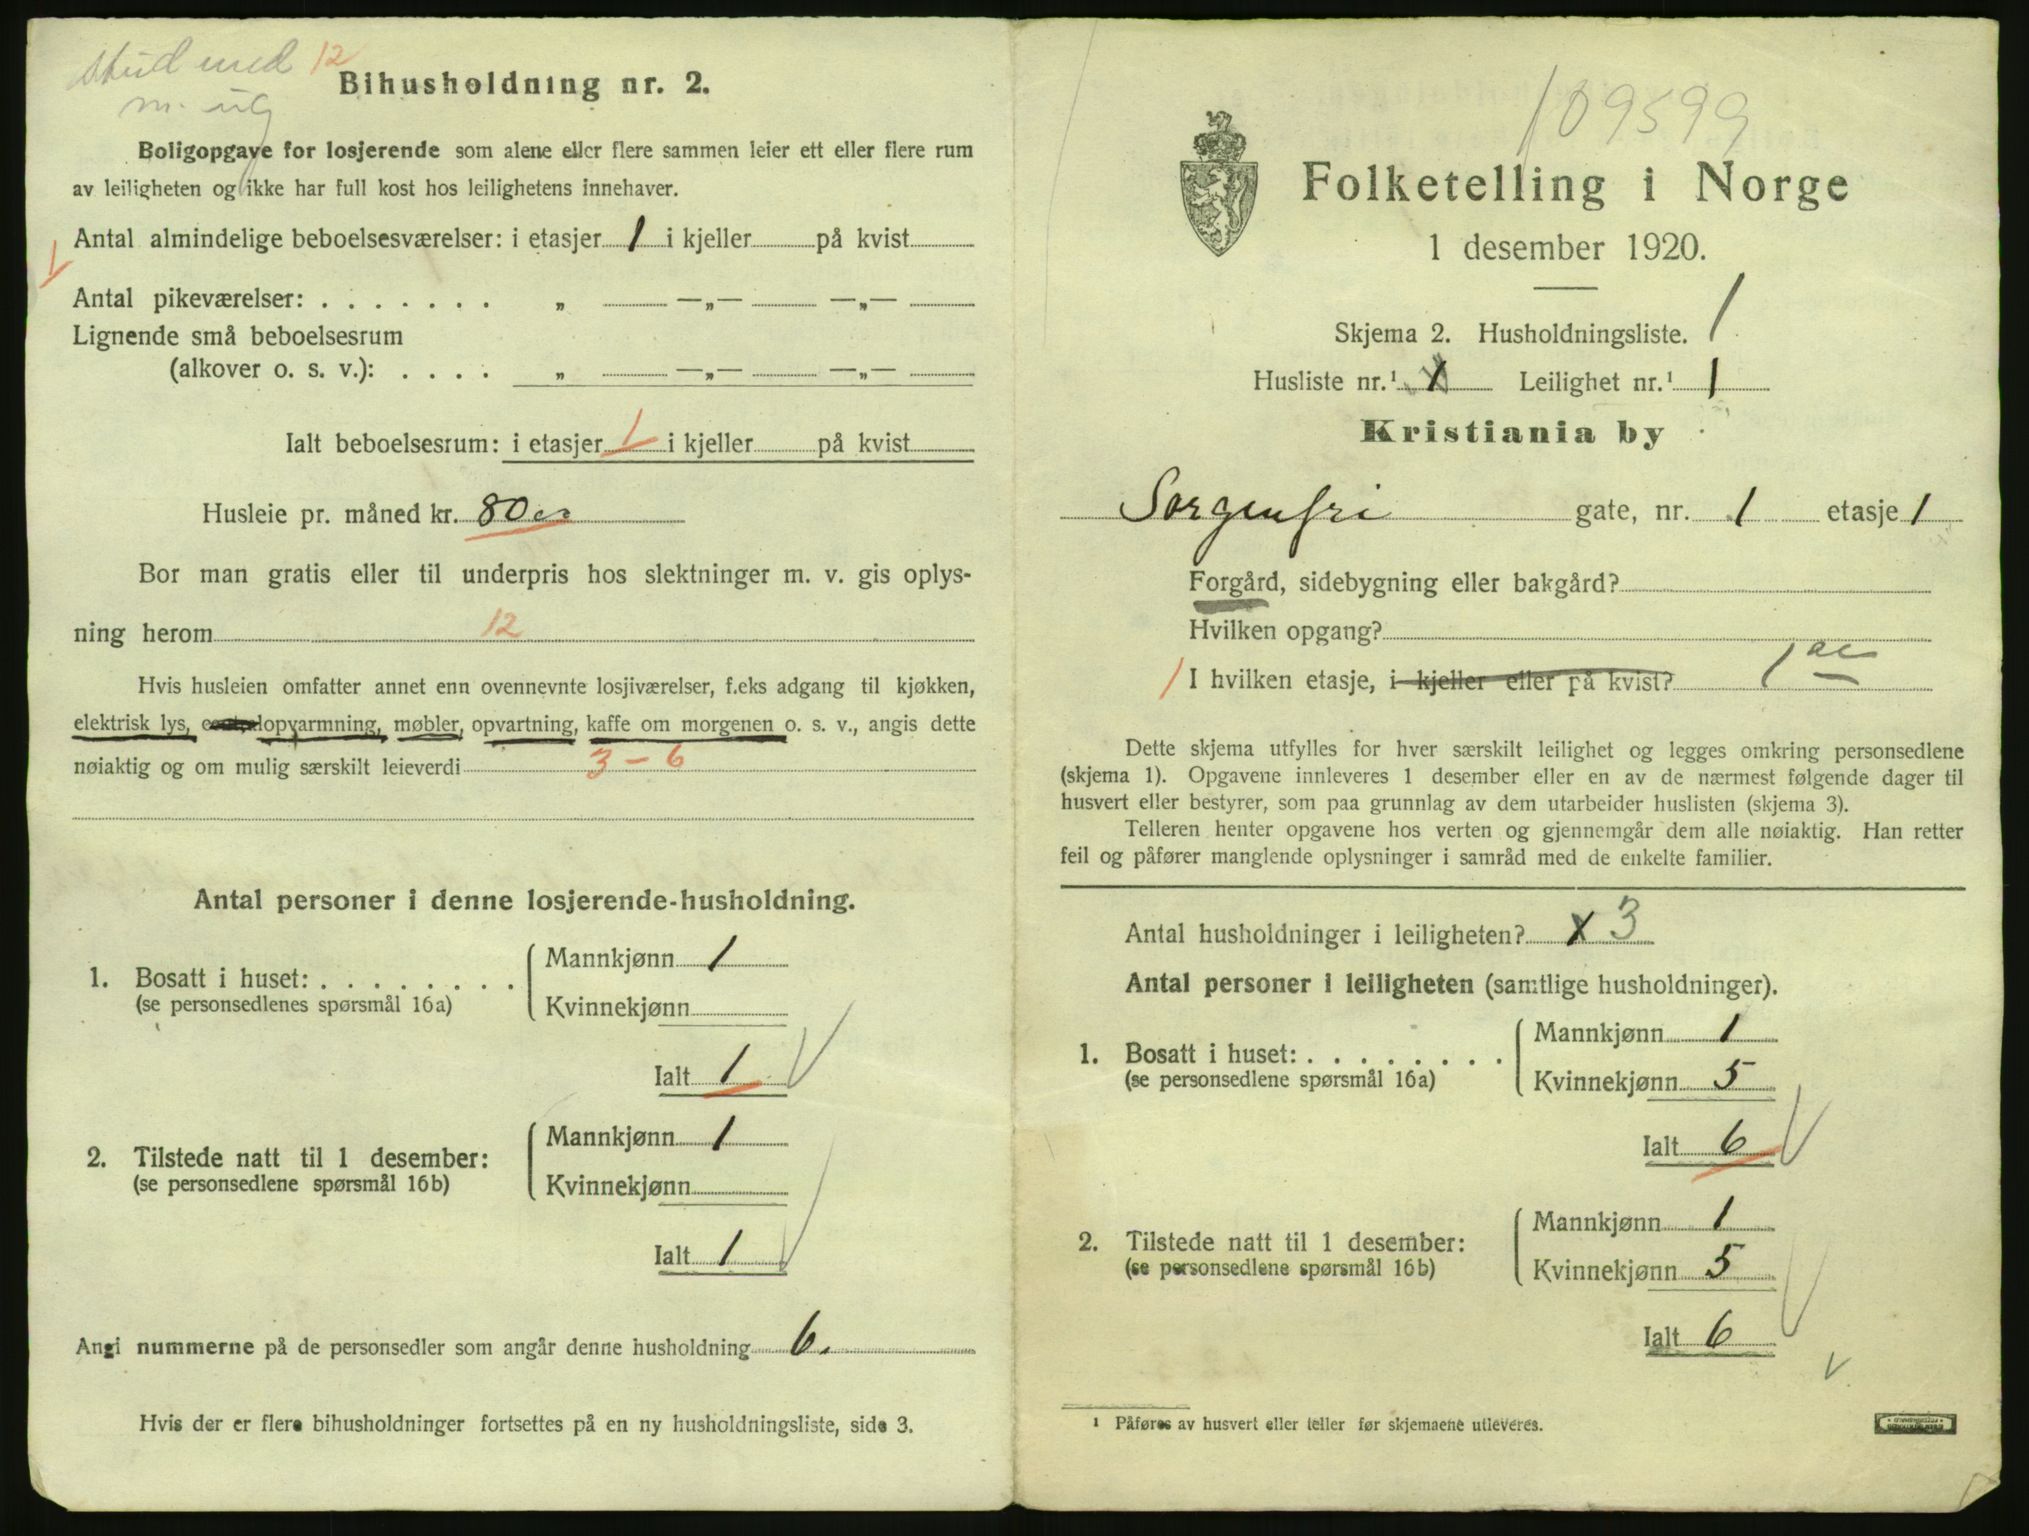 stud med 12
m. ug
Bihusholdning nr. 2.
Boligopgave for losjerende som alene eller flere sammen leier ett eller flere rum
av leiligheten og ikke har full kost hos leilighetens innehaver.
Antal almindelige beboelsesværelser: i etasjer 1 i kjeller på kvist
Antal pikeværelser: . . . . . . . „ —„— —„—
Lignende små beboelsesrum
(alkover o. s. v.): . . . . „ —„— —„—
Ialt beboelsesrum: i etasjer 1 i kjeller på kvist
Husleie pr. måned kr. 80
Bor man gratis eller til underpris hos slektninger m. v. gis oplys-
ning herom 12
Hvis husleien omfatter annet enn ovennevnte losjiværelser, f.eks adgang til kjøkken,
elektrisk lys, centralopvarmning, møbler, opvartning, kaffe om morgenen o. s. v., angis dette
nøiaktig og om mulig særskilt leieverdi 3 - 6
Antal personer i denne losjerende-husholdning.
1. Bosatt i huset: . . . . . . . . Mannkjønn 1
(se personsedlenes spørsmål 16a) Kvinnekjønn
Ialt 1
2. Tilstede natt til 1 desember: Mannkjønn 1
(se personsedlene spørsmål 16b) Kvinnekjønn
Ialt 1
Angi nummerne på de personsedler som angår denne husholdning 6.
Hvis der er flere bihusholdninger fortsettes på en ny husholdningsliste, side 3.
109599
Folketelling i Norge
1 desember 1920.
Skjema 2. Husholdningsliste. 1
Husliste nr.¹ 1 Leilighet nr.¹ 1
Kristiania by
Sorgenfri gate, nr. 1 etasje 1
Forgård, sidebygning eller bakgård?
Hvilken opgang?
1 I hvilken etasje, i kjeller eller på kvist? 1
Dette skjema utfylles for hver særskilt leilighet og legges omkring personsedlene
(skjema 1). Opgavene innleveres 1 desember eller en av de nærmest følgende dager til
husvert eller bestyrer, som paa grunnlag av dem utarbeider huslisten (skjema 3).
Telleren henter opgavene hos verten og gjennemgår dem alle nøiaktig. Han retter
feil og påfører manglende oplysninger i samråd med de enkelte familier.
Antal husholdninger i leiligheten? x 3
Antal personer i leiligheten (samtlige husholdninger).
1. Bosatt i huset: . . . . . . . . Mannkjønn 1
(se personsedlene spørsmål 16a) Kvinnekjønn 5
Ialt 6
2. Tilstede natt til 1 desember: Mannkjønn 1
(se personsedlene spørsmål 16b) Kvinnekjønn 5
Ialt 6
¹ Påføres av husvert eller teller før skjemaene utleveres.